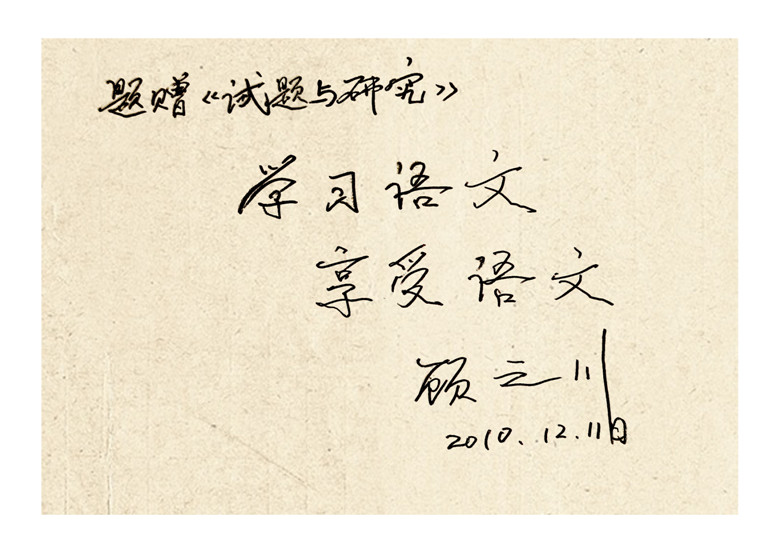 题赠《试题与研究》
学习语文
享受语文
顾之川
2010.12.11日